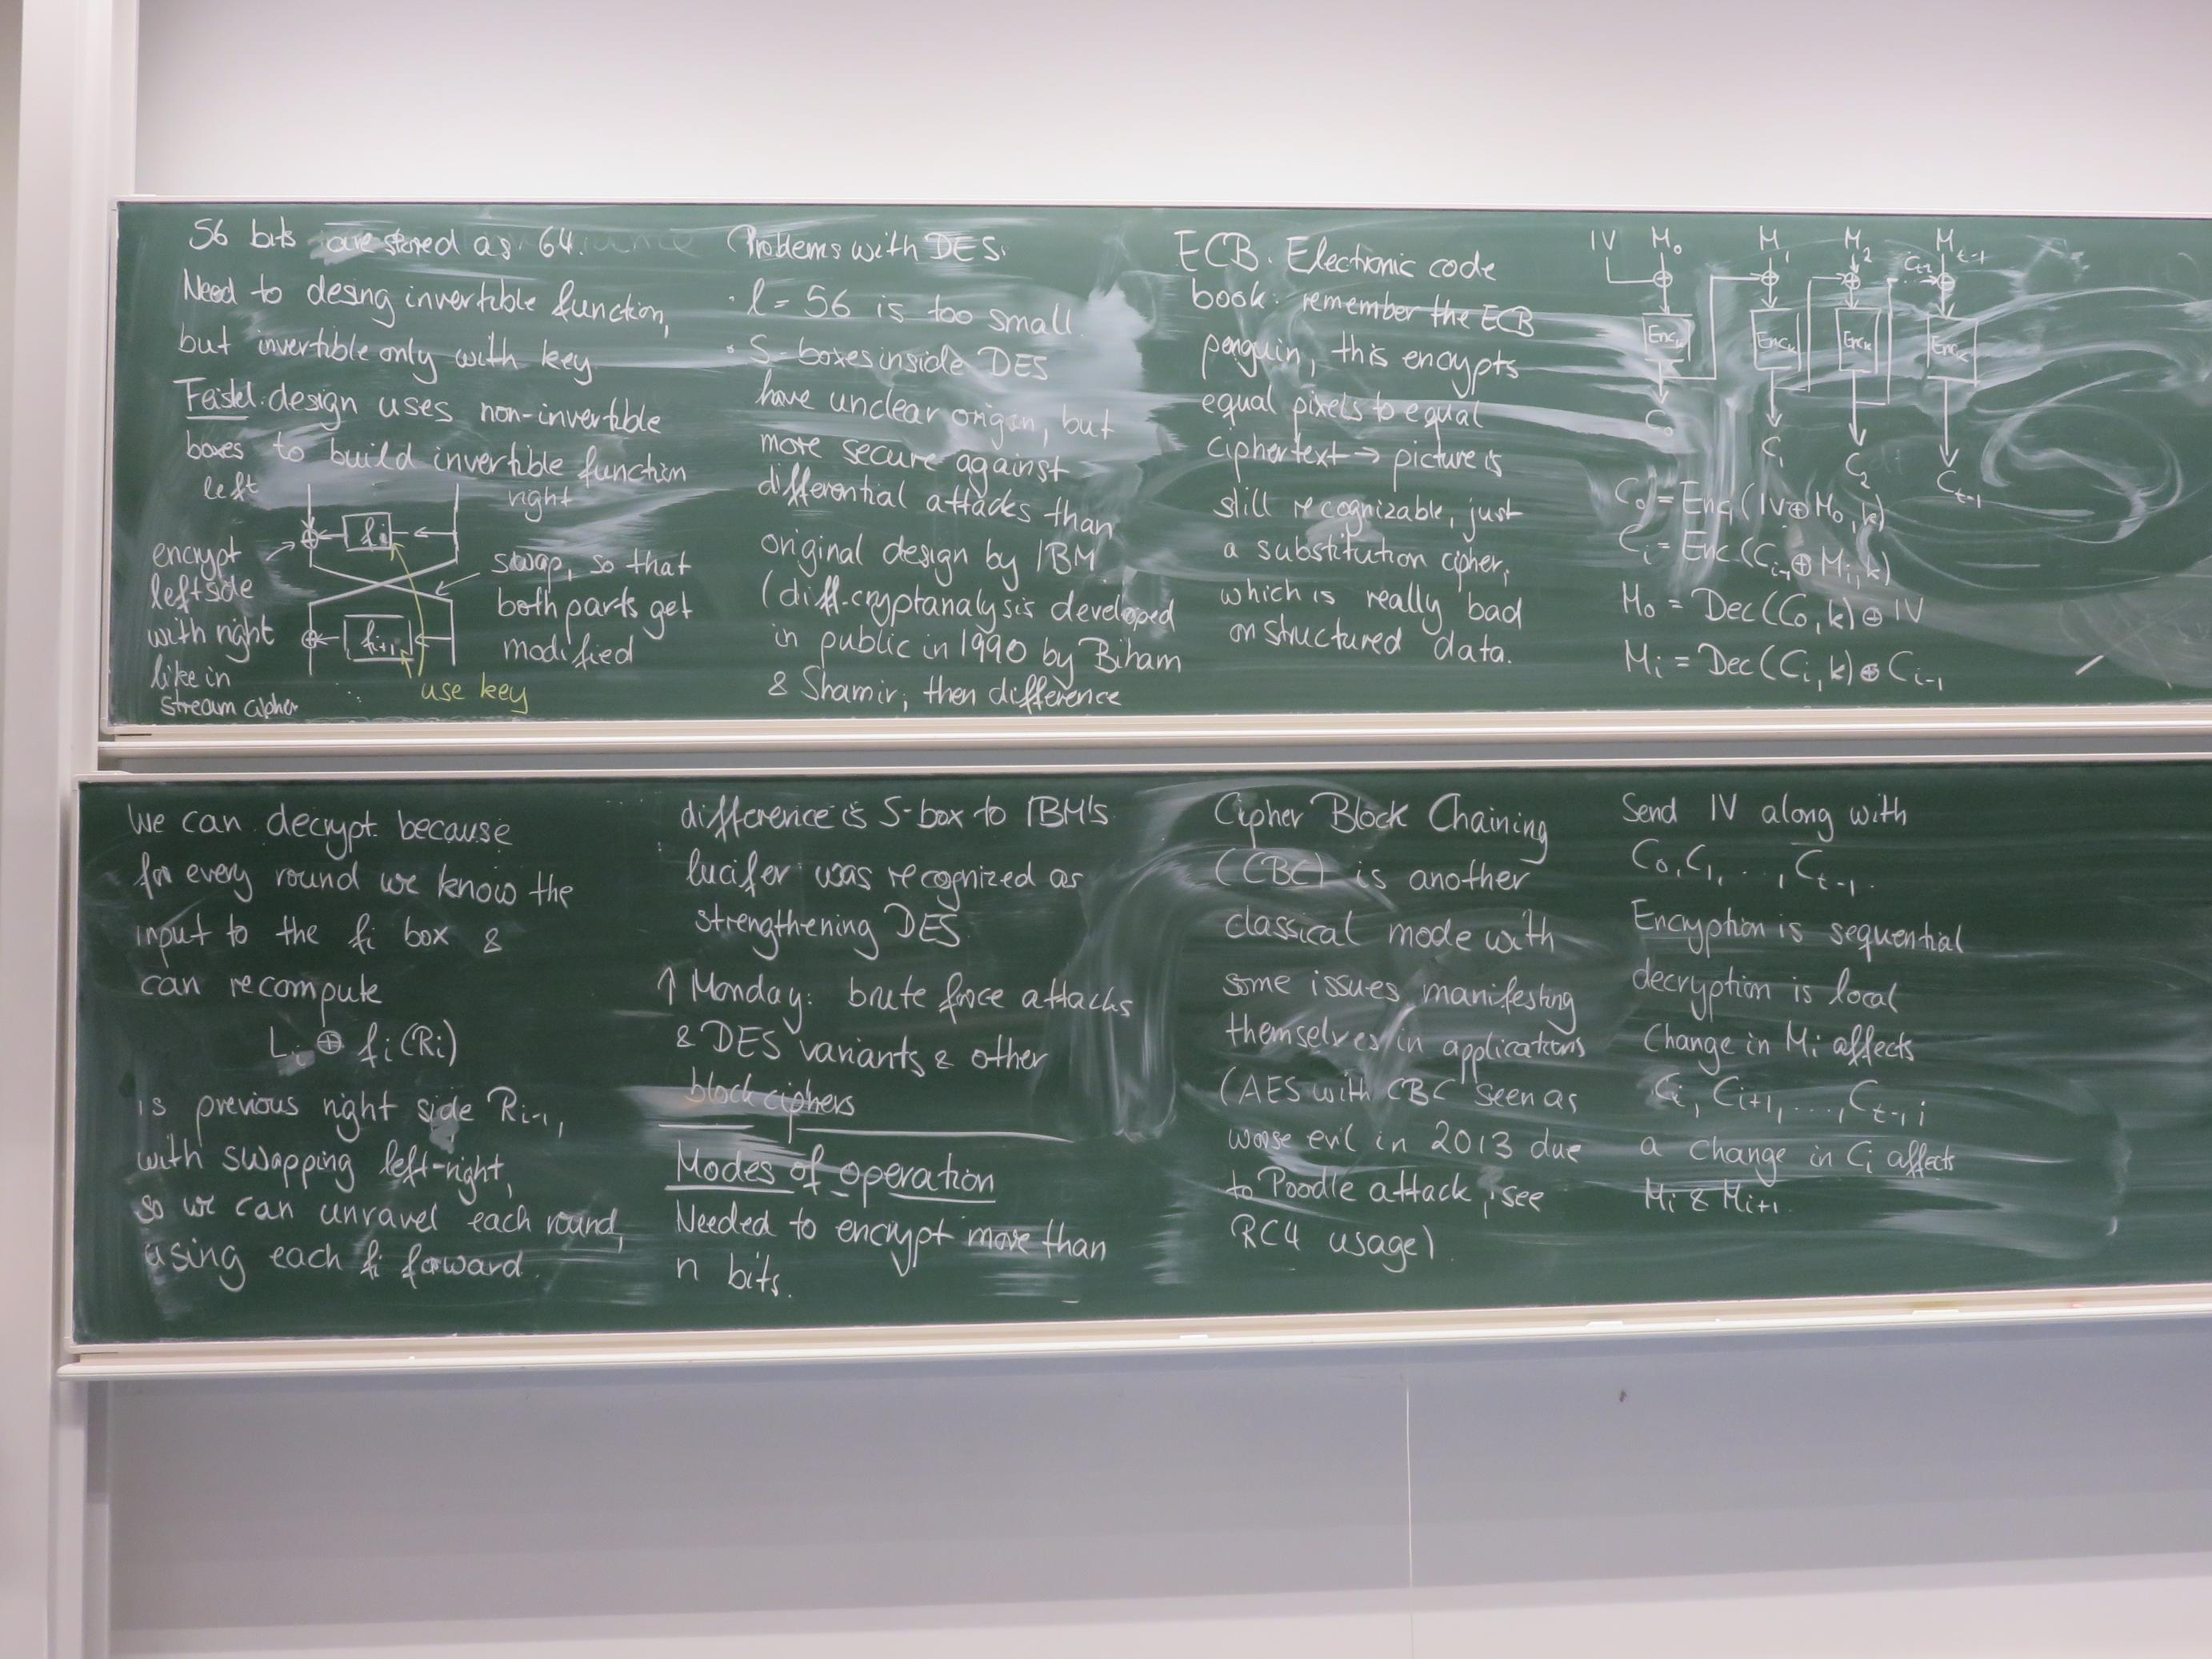 56 bits are stored as 64.
Need to desing invertible function,
but invertible only with key
Feistel: design uses non-invertible
boxes to build invertible function
left
right
fi
encrypt
left side
with right
like in
stream cipher
swap, so that
both parts get
modified
fi+1
use key
We can decrypt because
for every round we know the
input to the fi box &
can recompute
Li ⊕ fi(Ri)
is previous right side Ri-1,
with swapping left-right,
so we can unravel each round,
using each fi forward.
Problems with DES:
· l = 56 is too small
· S-boxes inside DES
have unclear origin, but
more secure against
differential attacks than
original design by IBM
(diff. cryptanalysis developed
in public in 1990 by Biham
& Shamir, then difference
difference is S-box to IBM's
lucifer was recognized as
strengthening DES
↑ Monday: brute force attacks
& DES variants & other
block ciphers
Modes of operation
Needed to encrypt more than
n bits.
ECB. Electronic code
book: remember the ECB
penguin, this encrypts
equal pixels to equal
ciphertext → picture is
still recognizable, just
a substitution cipher,
which is really bad
on structured data.
Cipher Block Chaining
(CBC) is another
classical mode with
some issues manifesting
themselves in applications
(AES with CBC seen as
worse evil in 2013 due
to Poodle attack, see
RC4 usage)
IV M0 M1 M2 Mt-1
Ct-2
Enck Enck Enck Enck
C0 C1 C2 Ct-1
C0 = Enc(IV⊕M0,k)
Ci = Enc(Ci-1⊕Mi,k)
M0 = Dec(C0,k)⊕IV
Mi = Dec(Ci,k)⊕Ci-1
Send IV along with
C0,C1,...,Ct-1.
Encryption is sequential
decryption is local
Change in Mi affects
Ci, Ci+1,...,Ct-1;
a change in Ci affects
Mi & Mi+1.